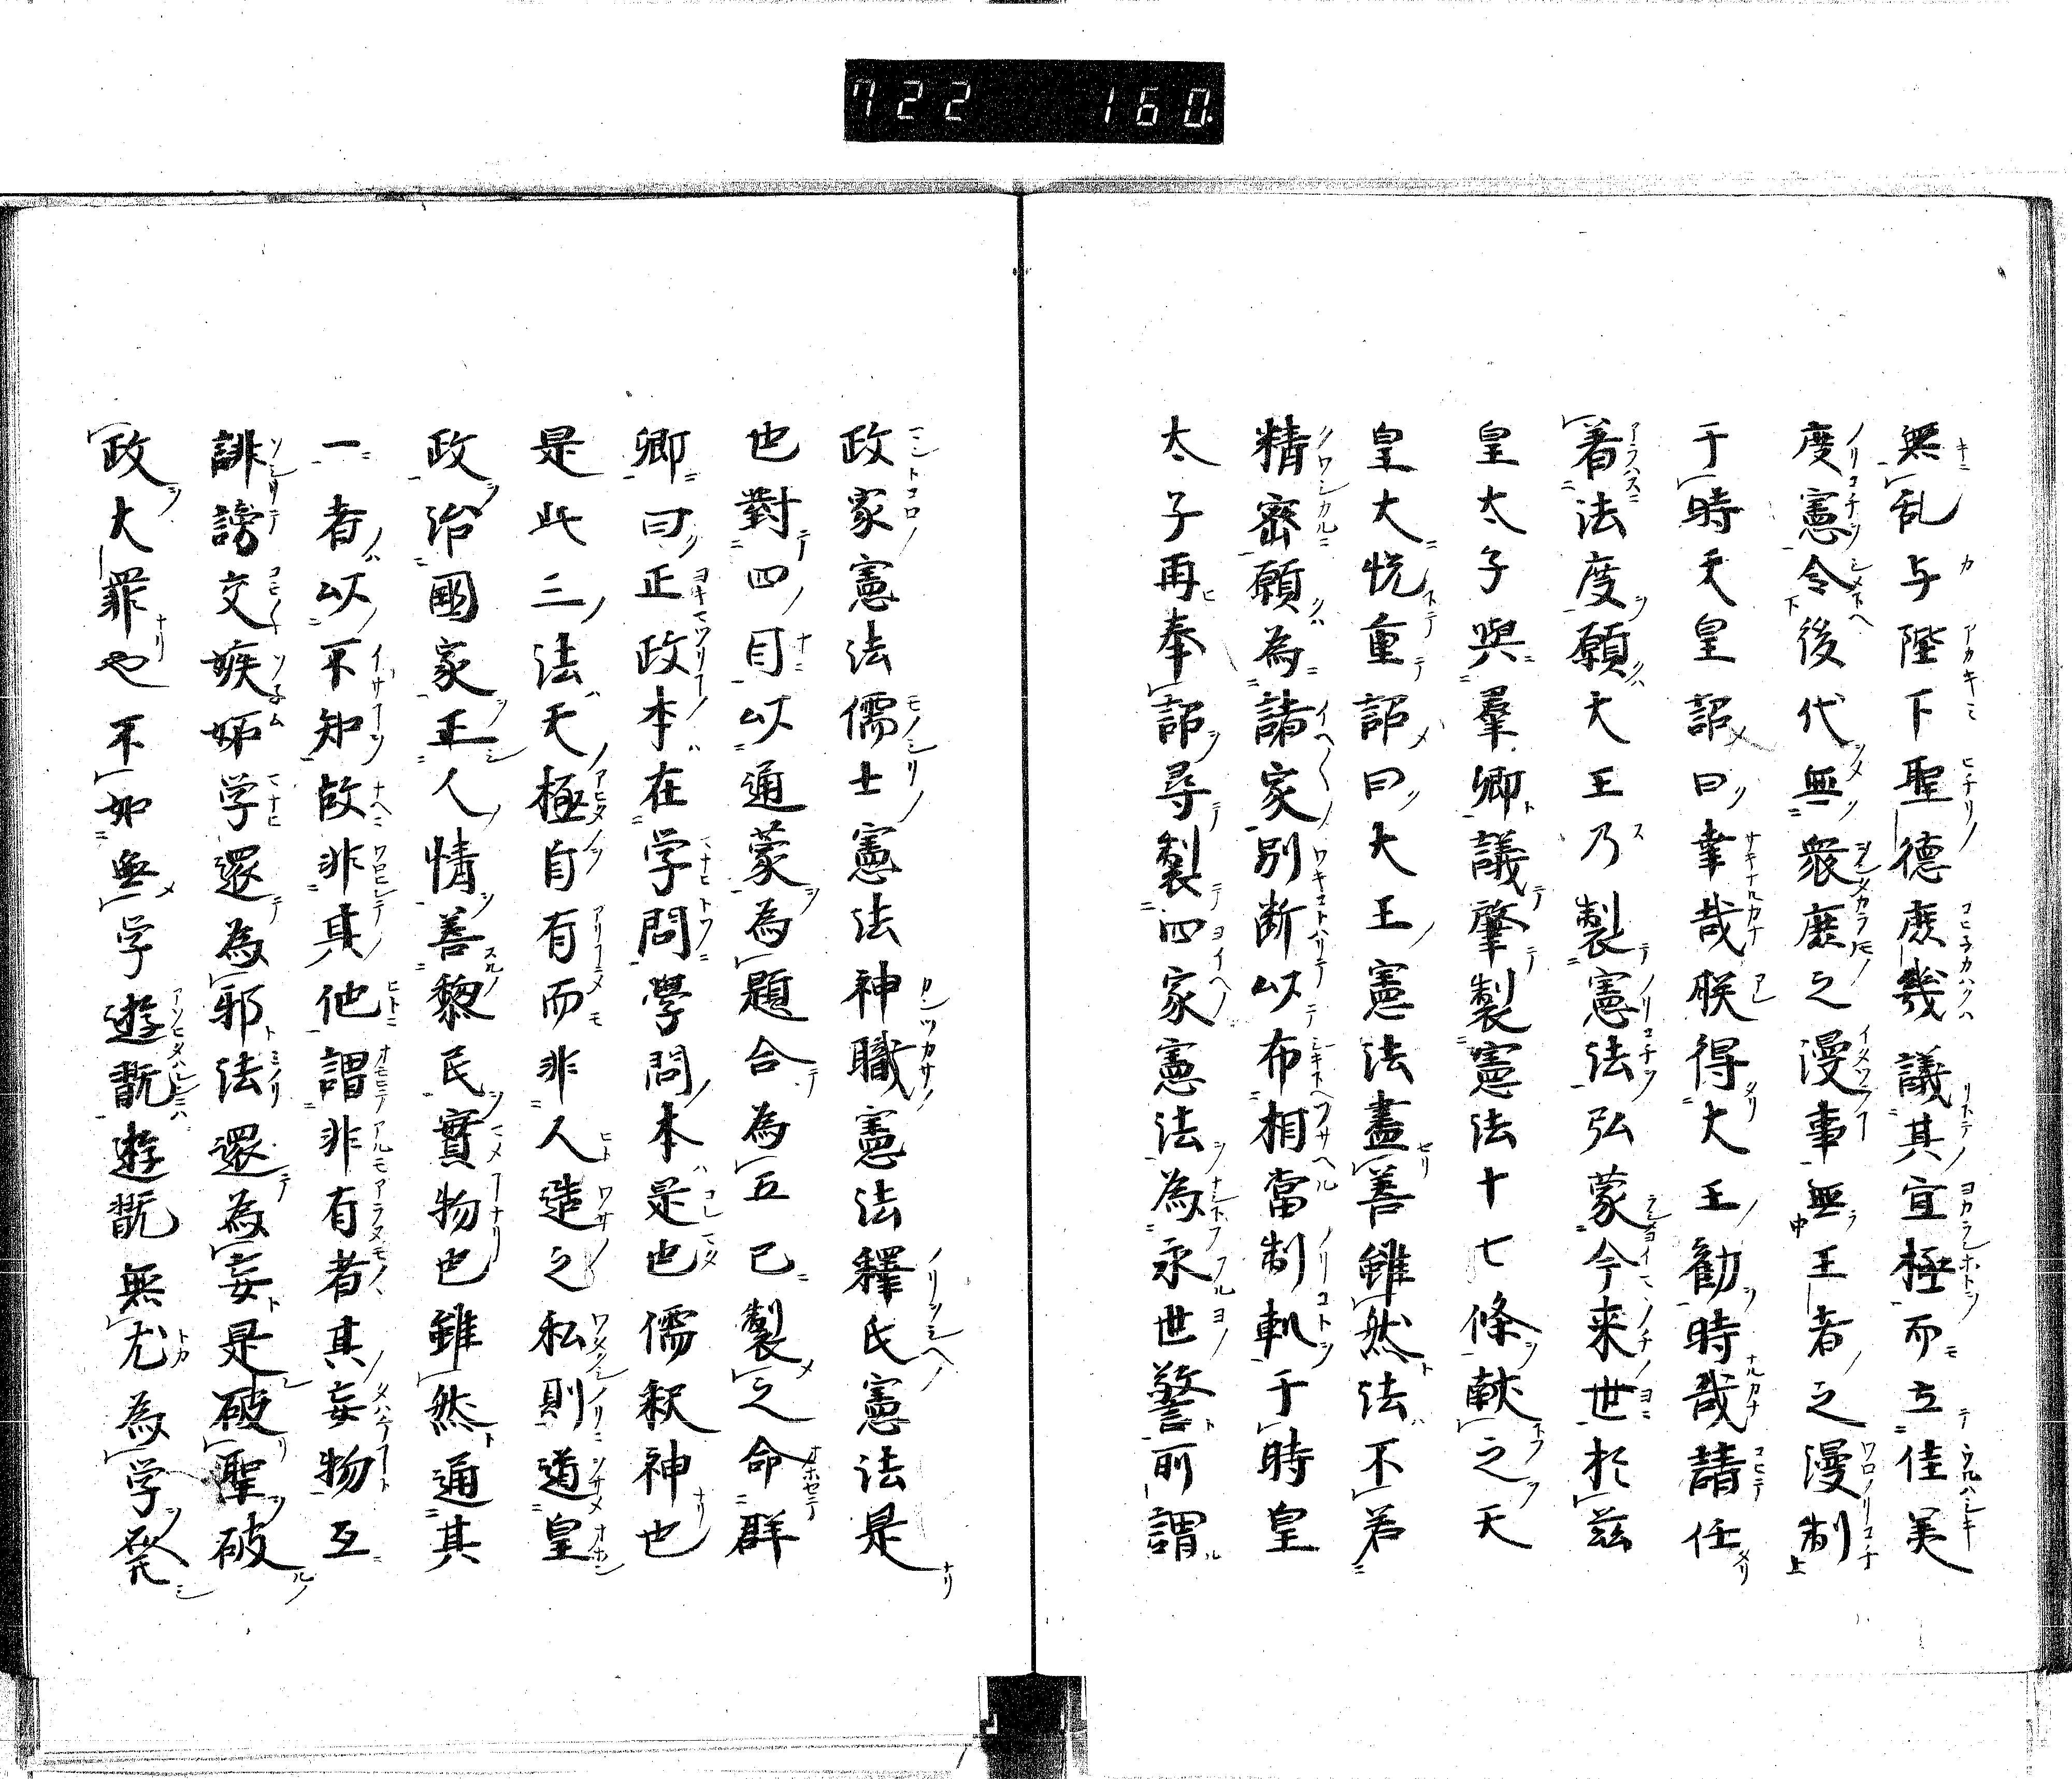 722 160.
無乱与陛下聖德庶幾議其宜極而立佳美
度憲令後代無衆庶之漫事無王者之漫制
于時天皇詔曰幸哉朕得大王勧時哉請任
著法度願大王乃製憲法弘蒙今来世於茲
皇太子與羣卿議肇製憲法十七條献之天
皇大悦重詔曰大王憲法盡善雖然法不若
精密願為諸家別断以布相當制軌于時皇
太子再奉詔尋製四家憲法為永世警所謂
政家憲法儒士憲法神職憲法釋氏憲法是
也對四目以通蒙為題合為五已製之命群
卿曰正政本在学問學問本是也儒釈神也
是此三法天極自有而非人造之私則道皇
政治國家正人情善黎民實物也雖然通其
一者以不知故非其他謂非有者其妄物互
誹謗交嫉妬学還為邪法還為妄是破聖破
政大罪也不如無学遊翫遊翫無尤為学発